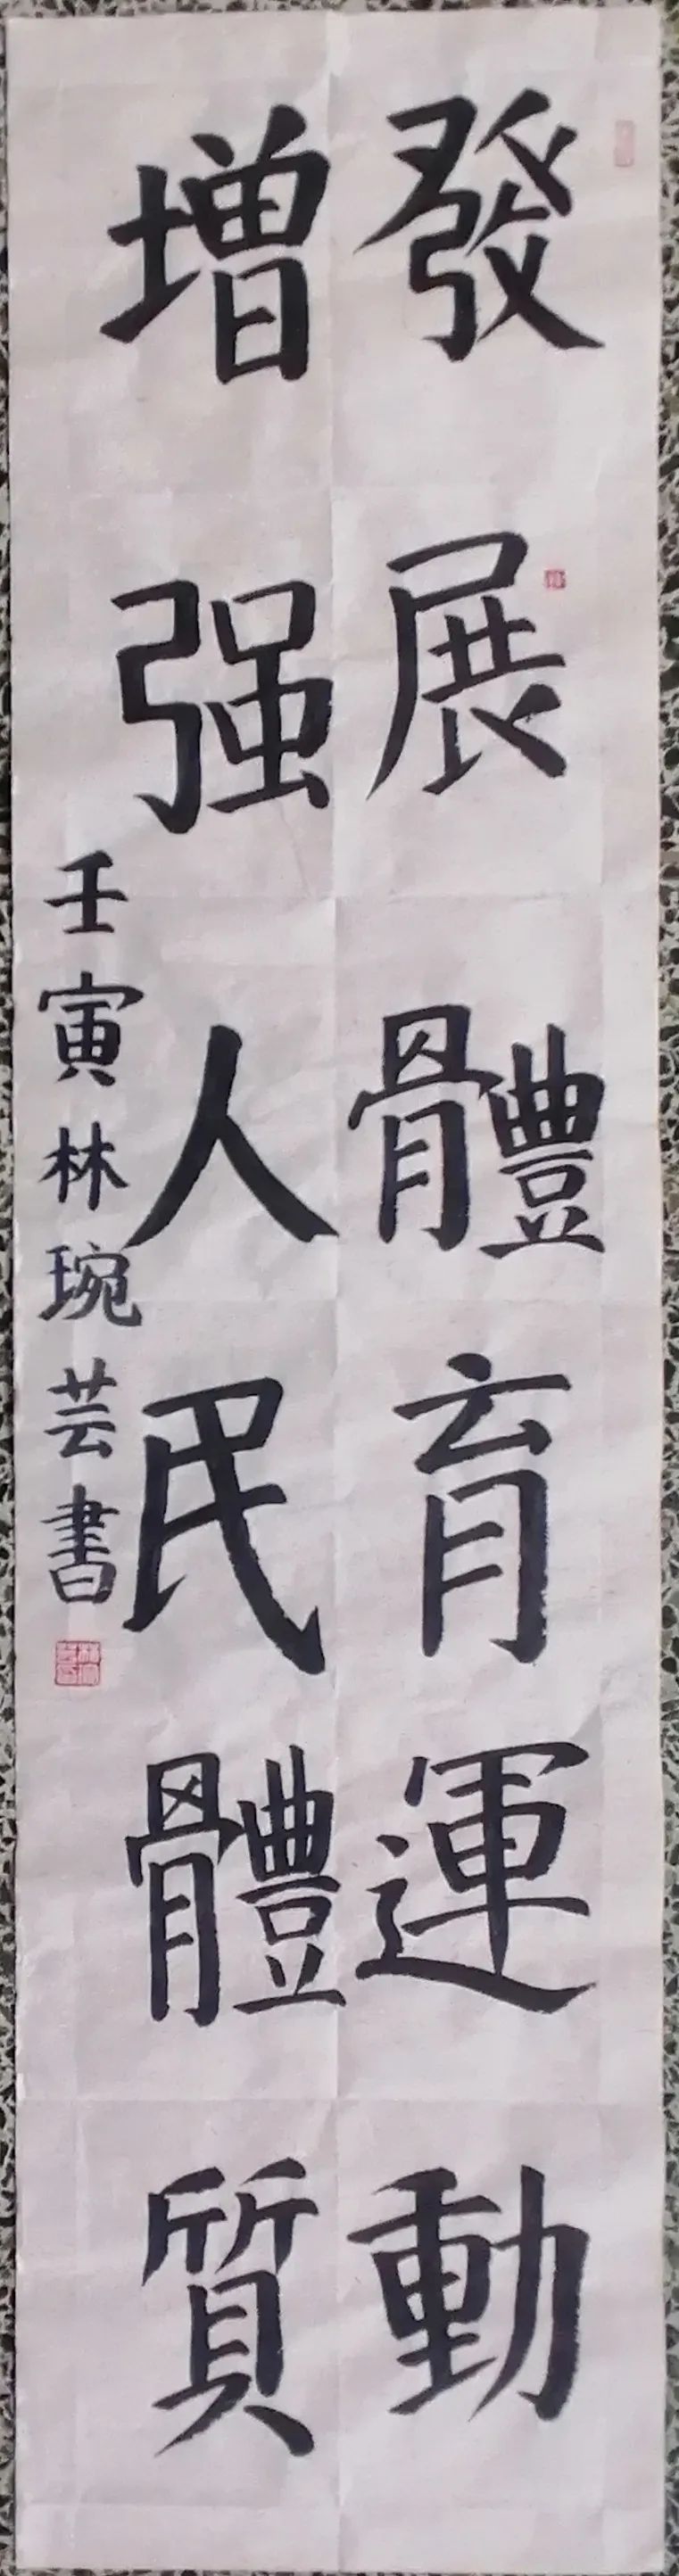 發展體育運動
增强人民體質
壬寅林琬芸書